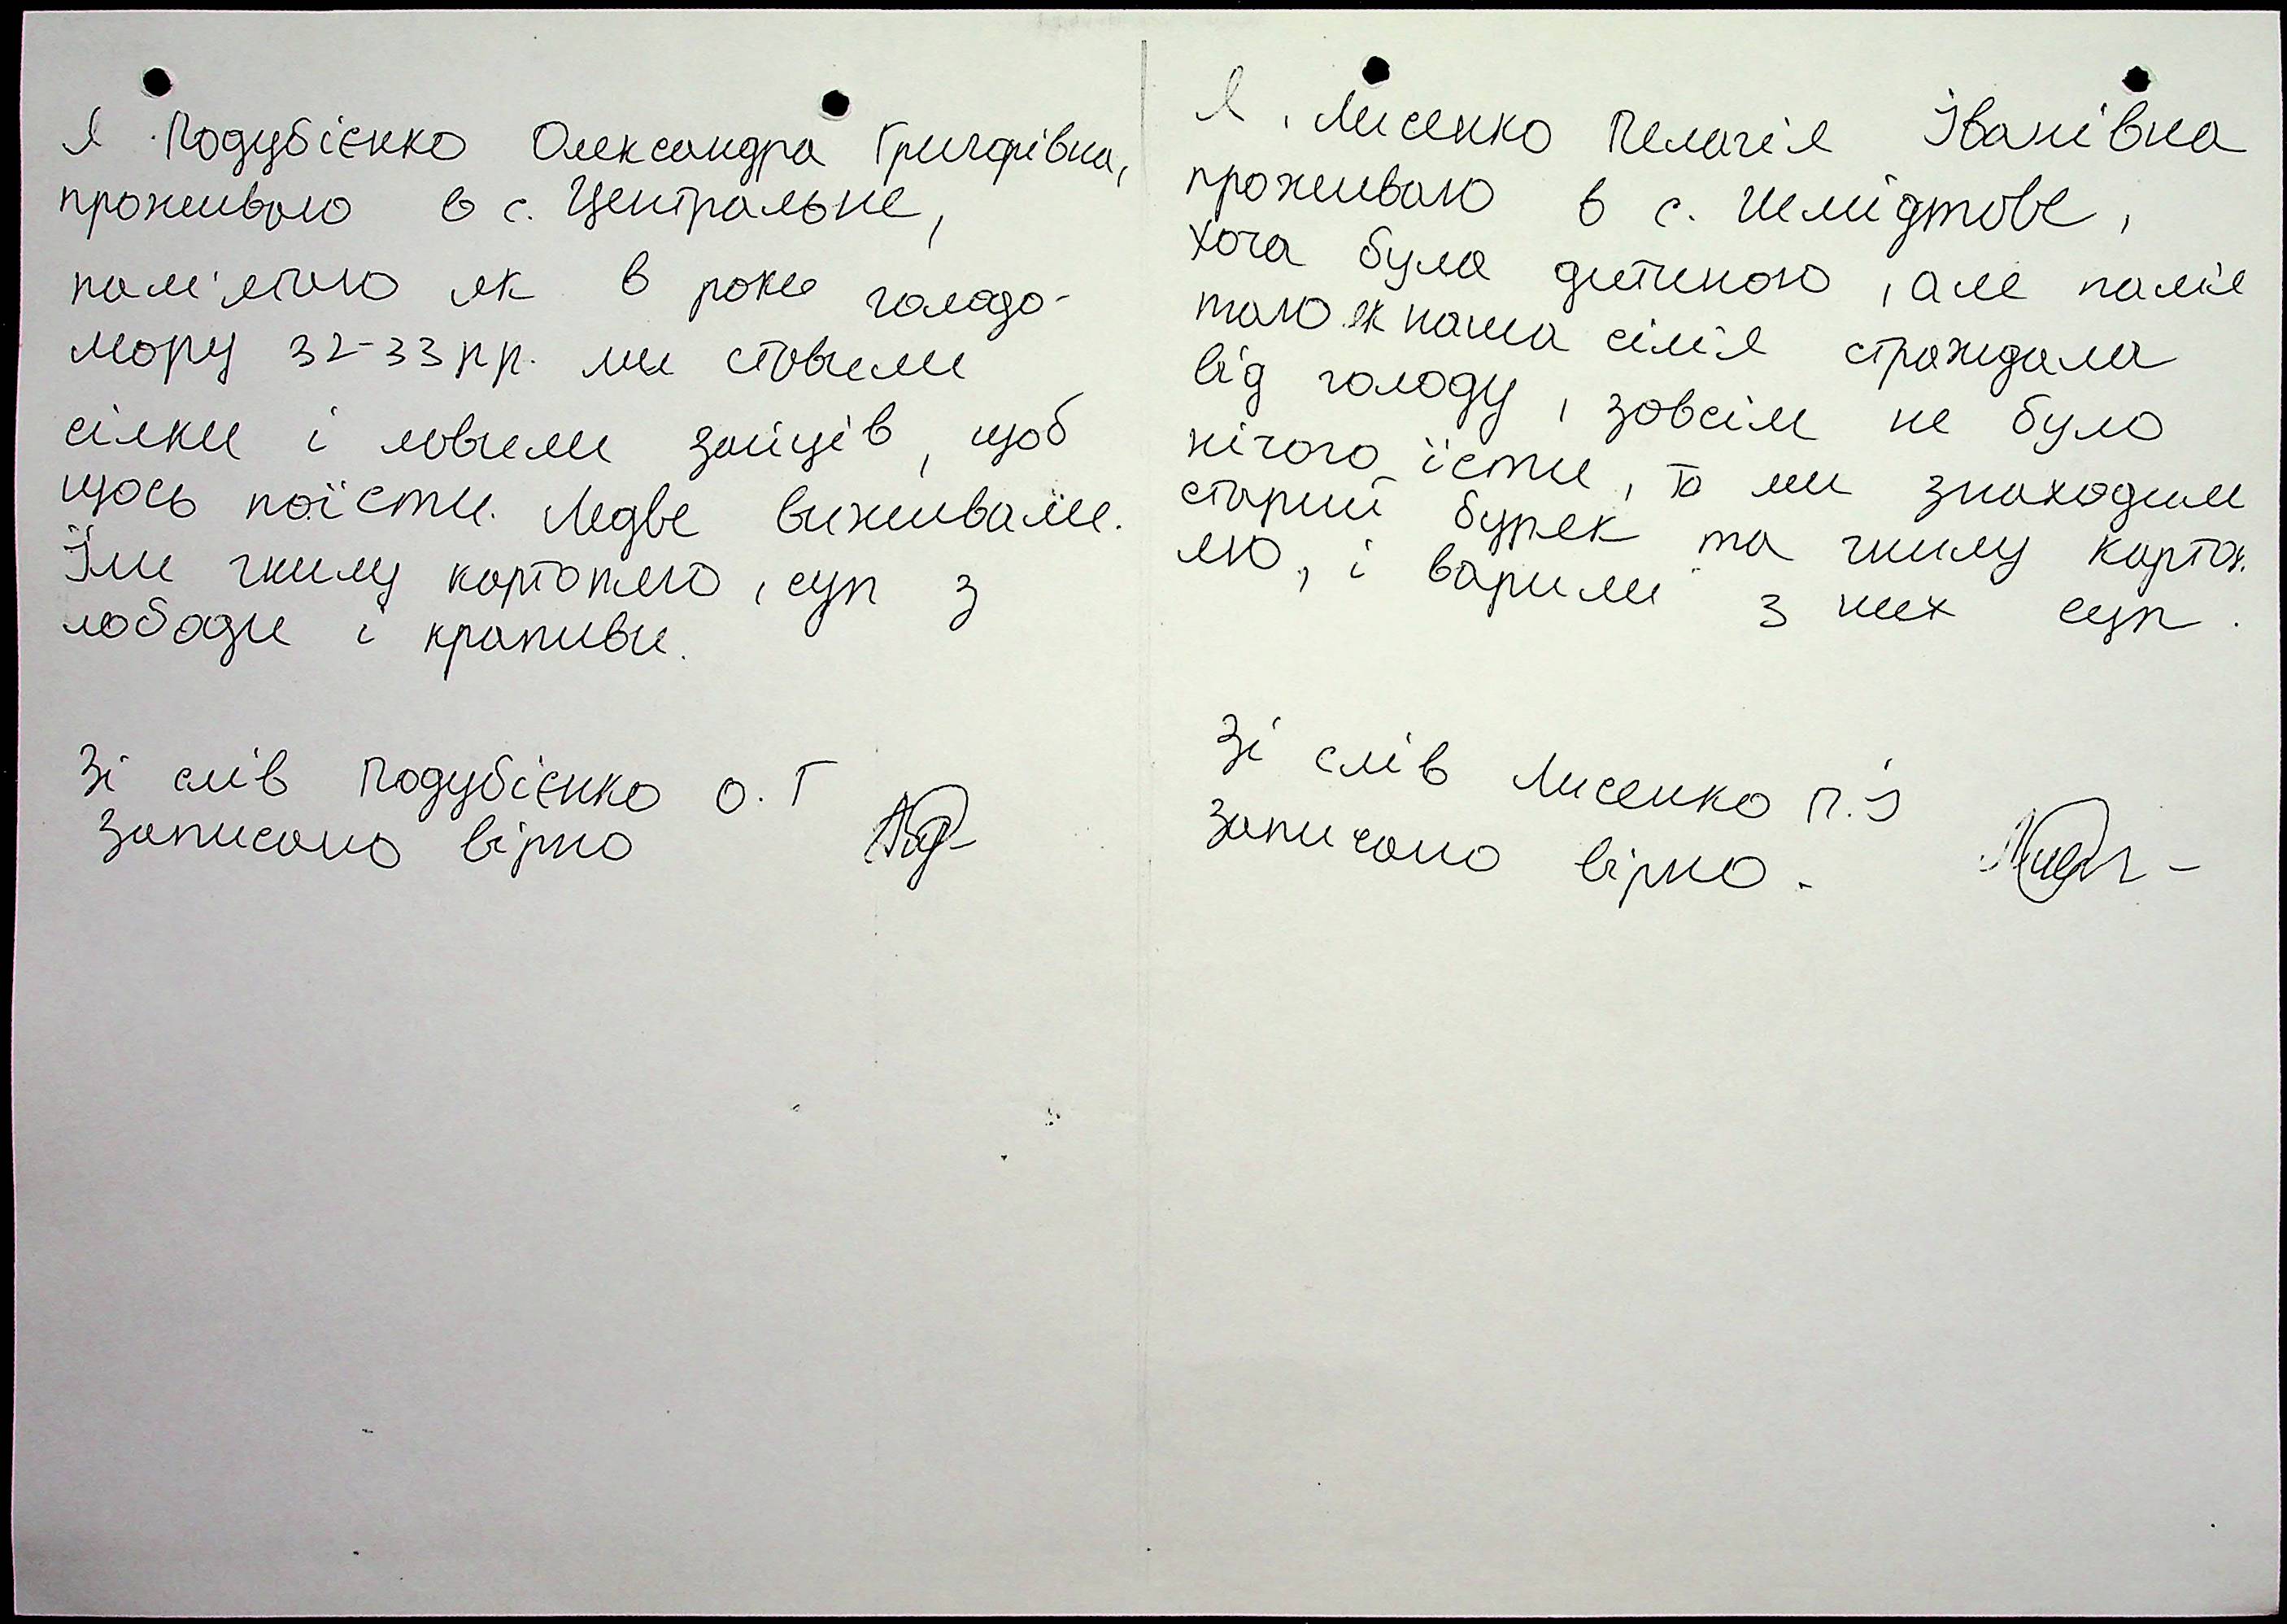 Я Подубієнко Олександра Григорівна,
проживаю в с. Центральне,
пам'ятаю як в роки голодо-
мору 32-33 рр. ми ставили
сілки і ловили зайців, щоб
щось поїсти. Ледве виживали.
Їли гнилу картоплю, суп з
лободи і крапиви.
Зі слів Подубієнко О. Г
записано вірно
Я, Лисенко Пелагія Іванівна
проживаю в с. Шмідтове,
хоча була дитиною, але пам'я
таю як наша сім'я страждала
від голоду, зовсім не було
нічого їсти, то ми знаходили
старий буряк та гнилу картоп.
лю, і варили з них суп.
Зі слів Лисенко П. І
записано вірно.